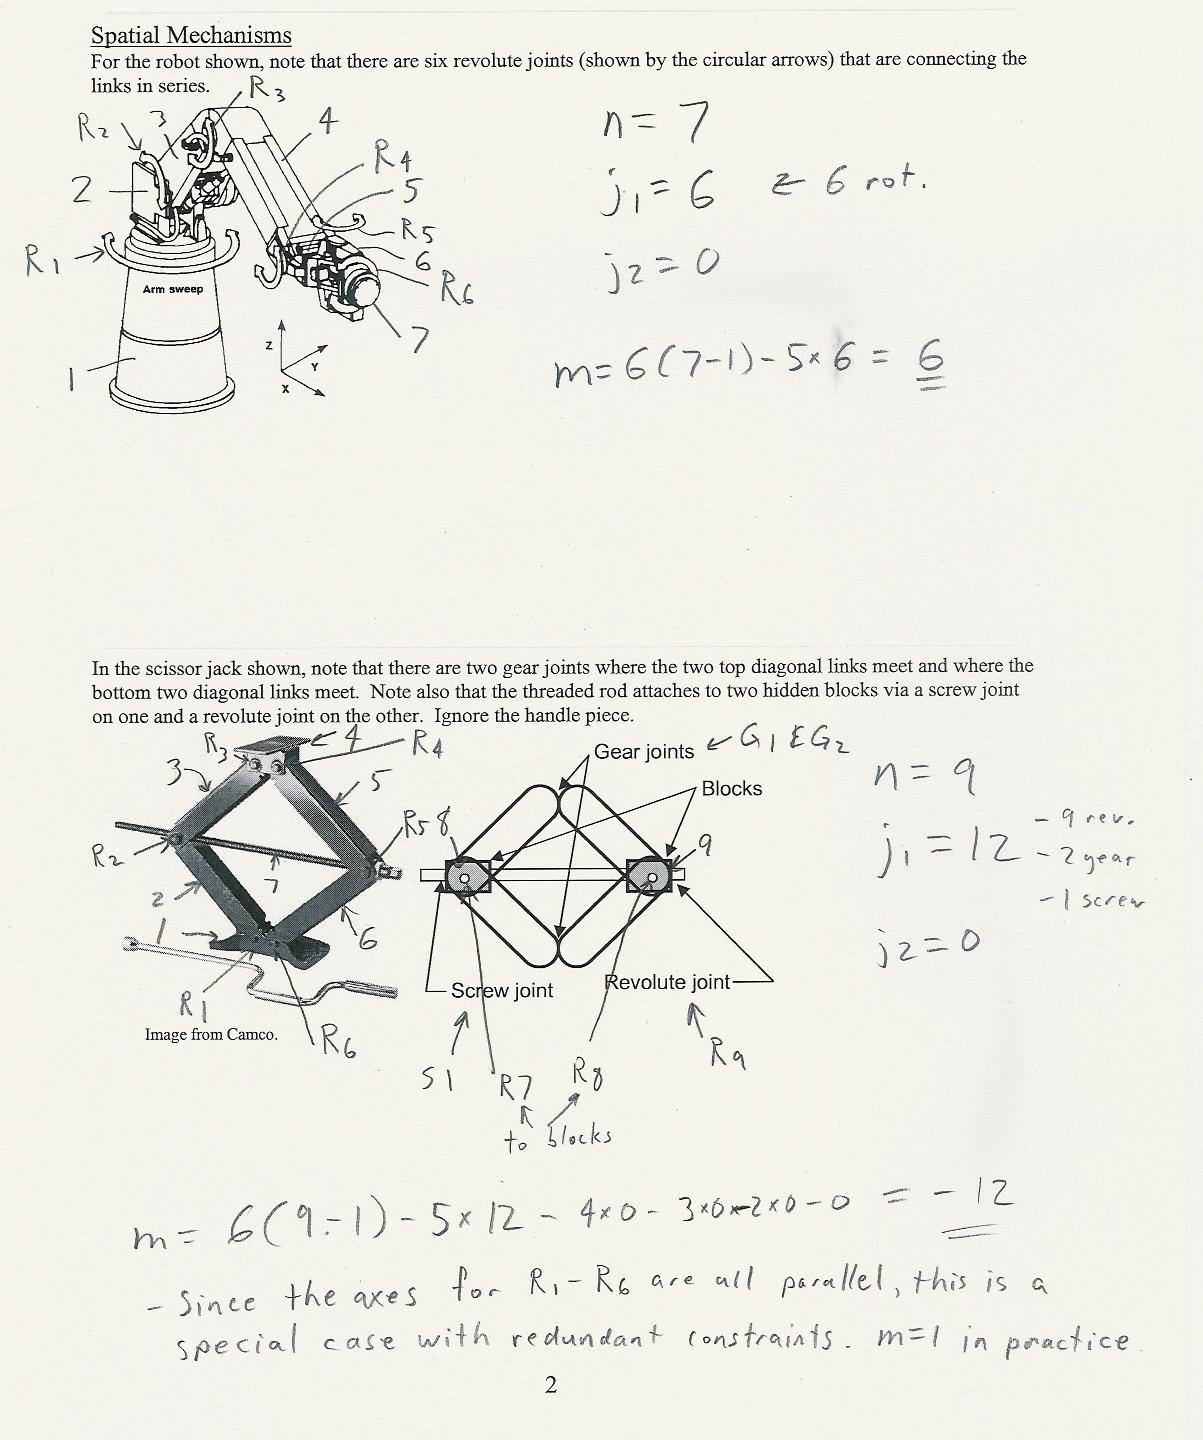 Spatial Mechanisms
For the robot shown, note that there are six revolute joints (shown by the circular arrows) that are connecting the
links in series.
R3
R2
3
4
R4
2
5
R5
R1
6
R6
Arm sweep
7
1
Z
Y
X
n = 7
j1 = 6 ← 6 rot.
j2 = 0
m = 6(7-1) - 5×6 = 6
In the scissor jack shown, note that there are two gear joints where the two top diagonal links meet and where the
bottom two diagonal links meet. Note also that the threaded rod attaches to two hidden blocks via a screw joint
on one and a revolute joint on the other. Ignore the handle piece.
R3
4
R4
3
5
R2
R5
2
7
1
6
R1
R6
Image from Camco.
Gear joints ← G1 & G2
Blocks
8
9
Screw joint
Revolute joint
S1
R7
R8
R9
to blocks
n = 9
j1 = 12
- 9 rev.
- 2 gear
- 1 screw
j2 = 0
m = 6(9-1) - 5×12 - 4×0 - 3×0 - 2×0 - 0 = -12
- Since the axes for R1 - R6 are all parallel, this is a
special case with redundant constraints. m=1 in practice.
2